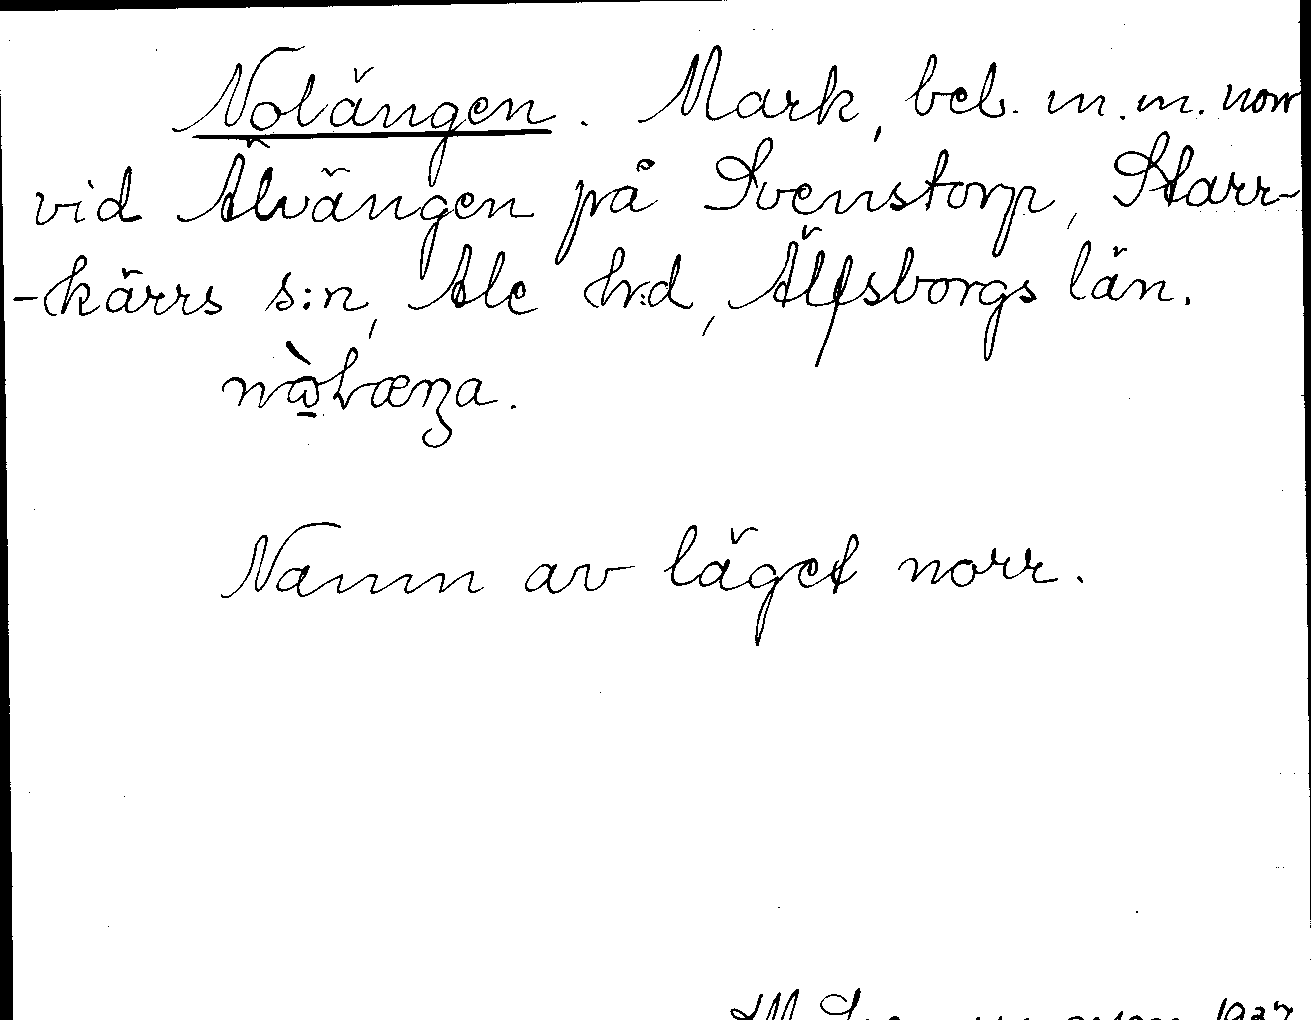 Nolängen. Mark, beb. m.m. norr
vid Älvängen på Svenstorp, Starr-
-kärrs s:n, Ale hd, Älfsborgs län.
Namn av läget norr.
1937